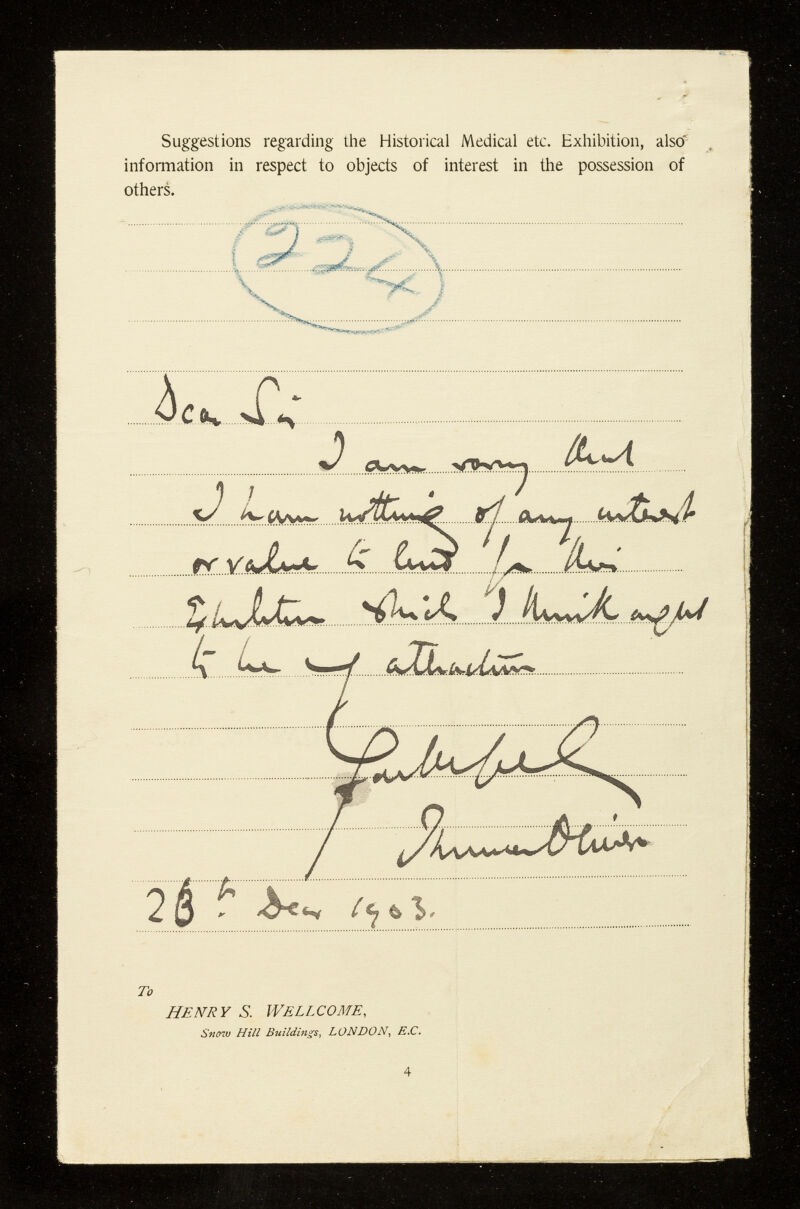 Suggestions regarding the Historical Medical etc. Exhibition, also
information in respect to objects of interest in the possession of
others.
224
Dear Sir
I am sorry that
I have nothing of any interest
or value to lend for this
Exhibition which I think ought
to be of attraction
Faithfully
Thomas Oliver
26th Decr 1903.
To
HENRY S. WELLCOME,
Snow Hill Buildings, LONDON, E.C.
4